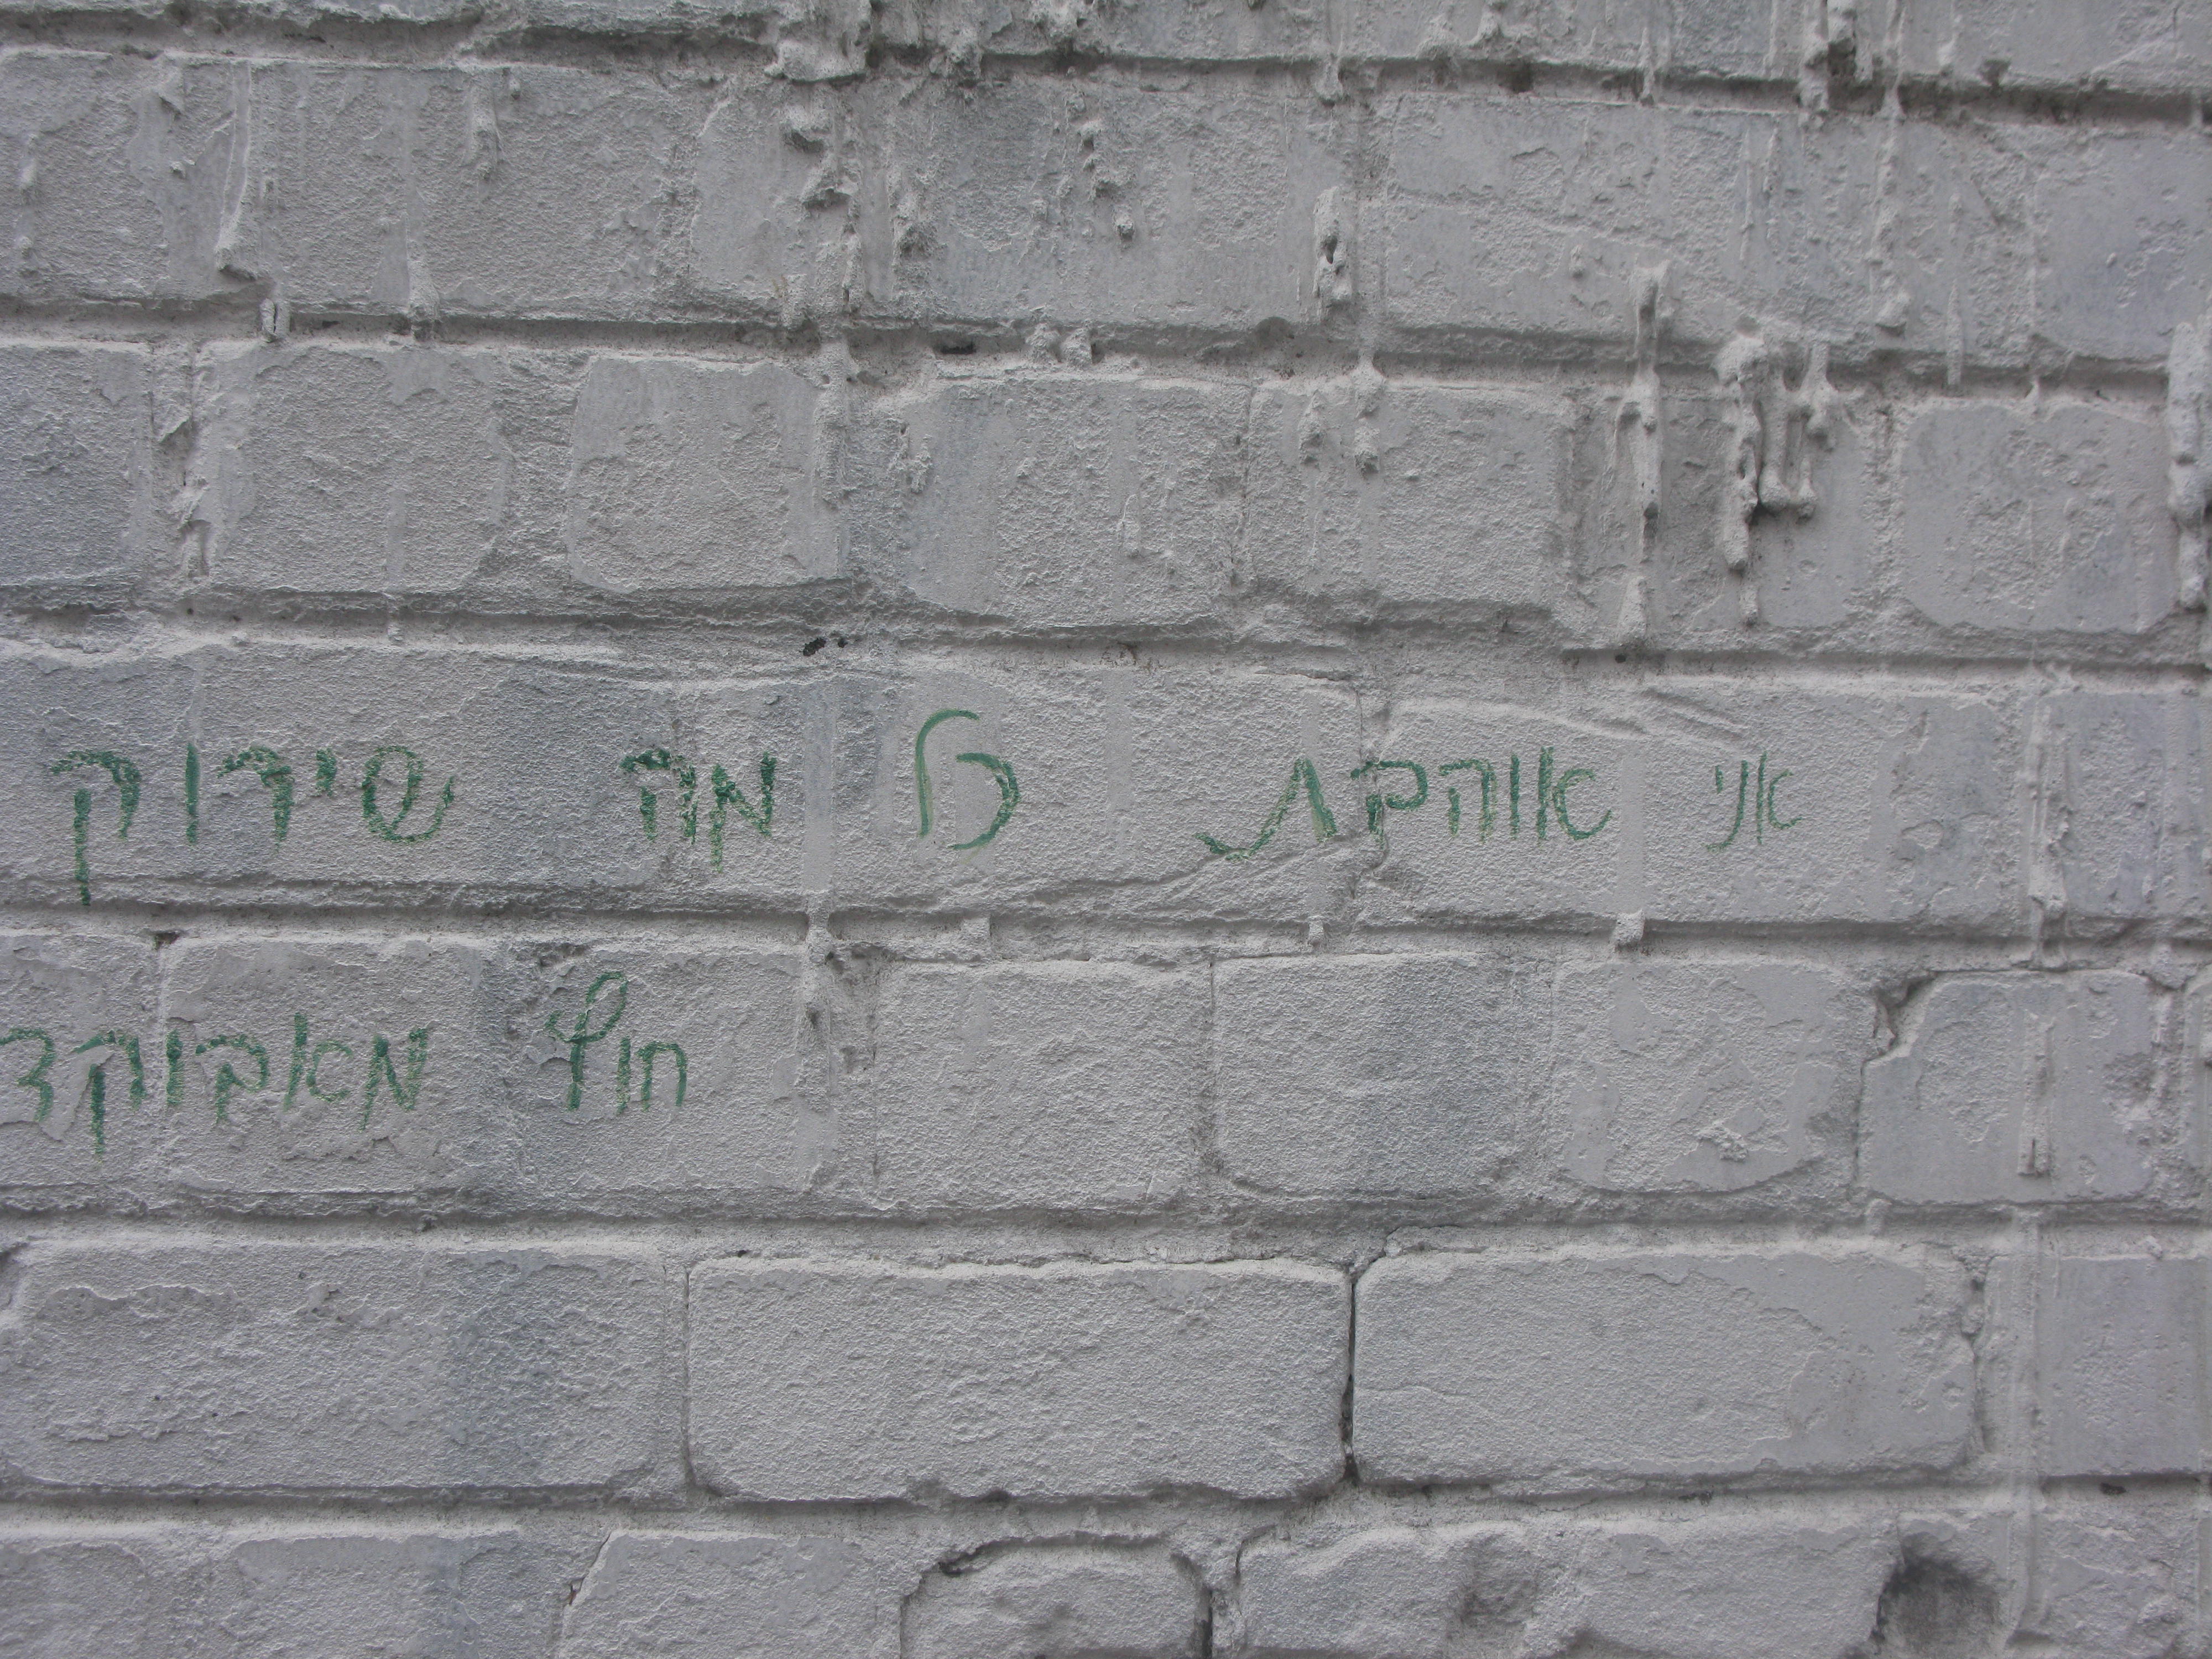 אני אוהבת כל מה שירוק
חוץ מאבוקד